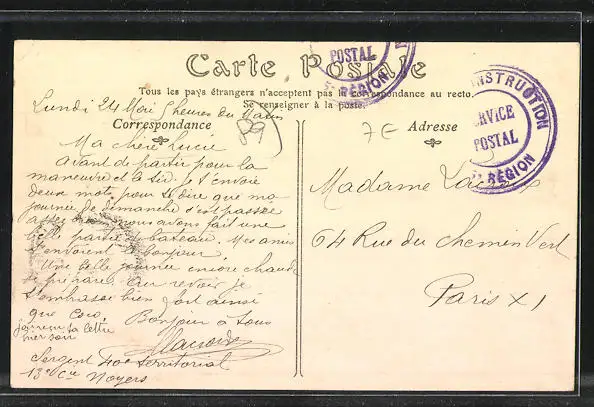 Carte Postale
Tous les pays étrangers n'acceptent pas la correspondance au recto.
Se renseigner à la poste.
Correspondance
Adresse
Lundi 24 Mai 5 heures du Matin
Ma chère Lucie
avant de partir pour la
manœuvre et le tir je t'envoie
deux mots pour te dire que ma
journée de dimanche s'est passée
assez bien nous avons fait une
belle partie de bateau. Mes amis
t'envoient le bonjour
Une belle journée encore chaude
se prépare. Au revoir je
t'embrasse bien fort ainsi
que Coco. Bonjour à tous
j'ai reçu ta lettre
hier soir
Sergent 40e territorial
13e Cie Noyers
89
7E
Madame
64 Rue du Chemin Vert
Paris XI
POSTAL
5e RÉGION
INSTRUCTION
SERVICE
POSTAL
5e RÉGION